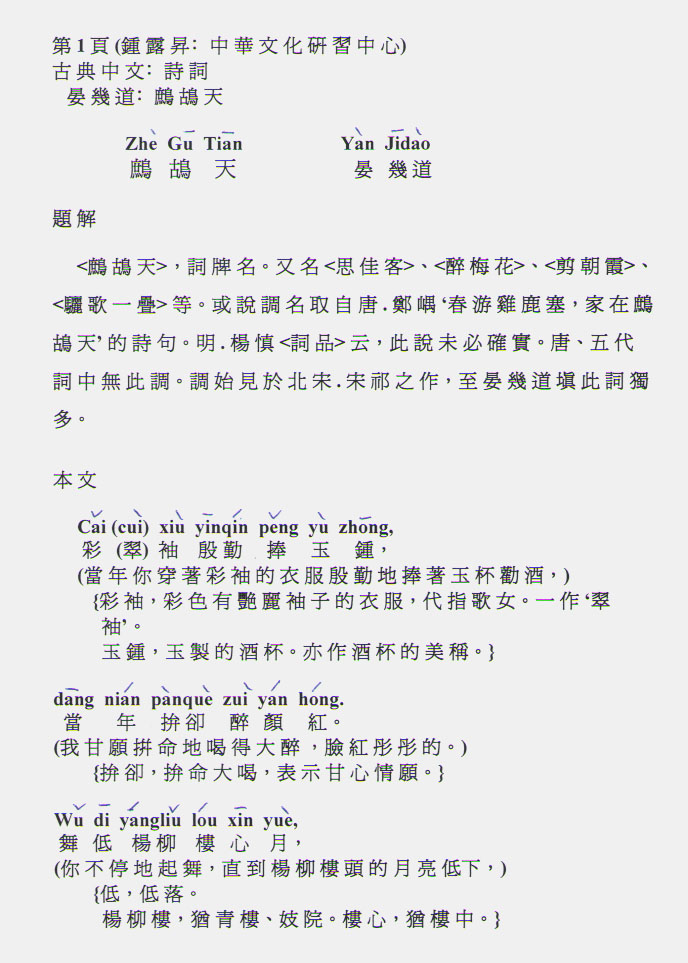 第1頁 (鍾露昇: 中華文化硏習中心)
古典中文: 詩詞
晏幾道: 鷓鴣天
Zhè Gū Tiān Yàn Jīdào
鷓鴣天 晏幾道
題解
<鷓鴣天>，詞牌名。又名<思佳客>、<醉梅花>、<剪朝霞>、
<驪歌一疊>等。或說調名取自唐.鄭嵎‘春游雞鹿塞，家在鷓
鴣天’的詩句。明.楊慎<詞品>云，此說未必確實。唐、五代
詞中無此調。調始見於北宋.宋祁之作，至晏幾道塡此詞獨
多。
本文
Cǎi (cuì) xiù yīnqín pěng yù zhōng,
彩 (翠) 袖 殷勤 捧 玉 鍾，
(當年你穿著彩袖的衣服殷勤地捧著玉杯勸酒，)
{彩袖，彩色有艷麗袖子的衣服，代指歌女。一作‘翠
袖’。
玉鍾，玉製的酒杯。亦作酒杯的美稱。}
dāng nián pànquè zuì yán hóng.
當 年 拚卻 醉 顏 紅。
(我甘願拚命地喝得大醉，臉紅彤彤的。)
{拚卻，拚命大喝，表示甘心情願。}
Wǔ dī yángliǔ lóu xīn yuè,
舞 低 楊柳 樓 心 月，
(你不停地起舞，直到楊柳樓頭的月亮低下，)
{低，低落。
楊柳樓，猶青樓、妓院。樓心，猶樓中。}